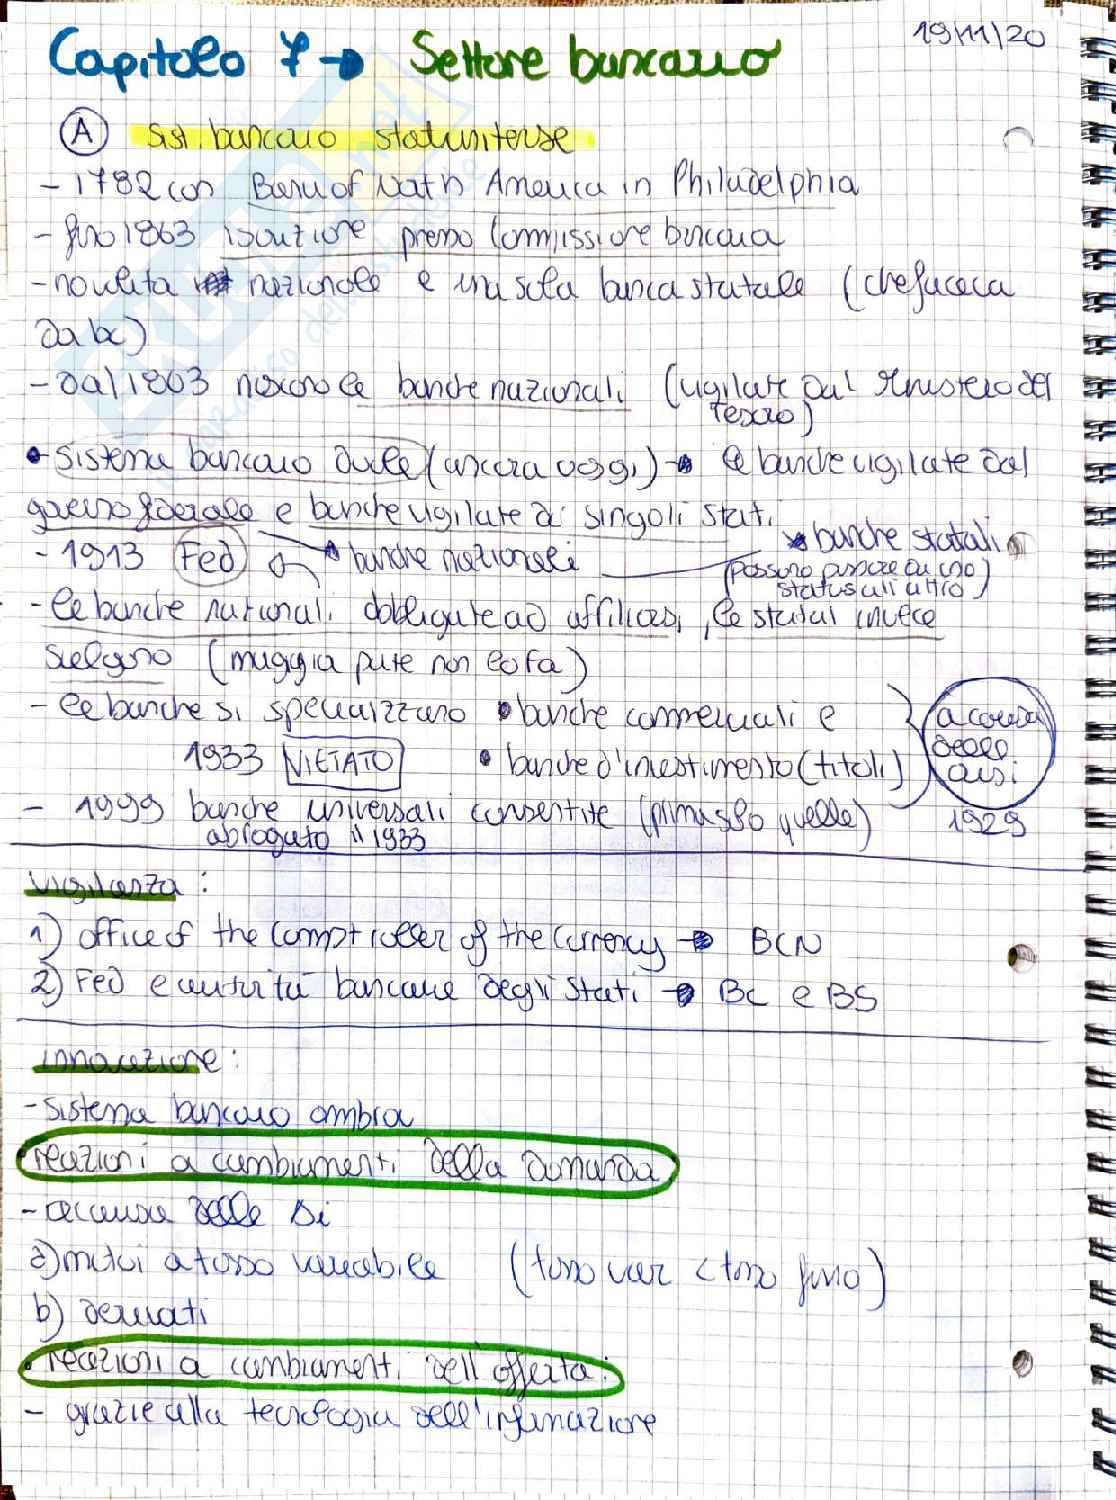 19/11/20
Capitolo 7 → Settore bancario
A sist. bancario statunitense
- 1782 con Bank of North America in Philadelphia
- fino 1863 iscrizione presso Commissione bancaria
- no valuta nazionale e una sola banca statale (che faceva
da bc)
- dal 1863 nascono le banche nazionali (vigilate dal Ministero del
Tesoro)
• Sistema bancario duale (ancora oggi) → le banche vigilate dal
governo federale e banche vigilate di singoli stati
→ banche statali
- 1913 Fed → banche nazionali
(possono passare da uno
status all'altro)
- le banche nazionali obbligate ad affiliarsi, le statali invece
scelgono (maggior parte non lo fa)
- le banche si specializzano • banche commerciali e
1933 VIETATO • banche d'investimento (titoli)
a causa
della
crisi
1929
- 1999 banche universali consentite (prima solo quelle)
abrogato il 1933
vigilanza:
1) office of the Comptroller of the Currency → BCN
2) Fed e autorità bancarie degli Stati → BC e BS
innovazione:
- sistema bancario ombra
reazioni a cambiamenti della domanda
- a causa delle Δi
a) mutui a tasso variabile (tasso var < tasso fisso)
b) derivati
• reazioni a cambiamenti dell'offerta:
- grazie alla tecnologia dell'informazione